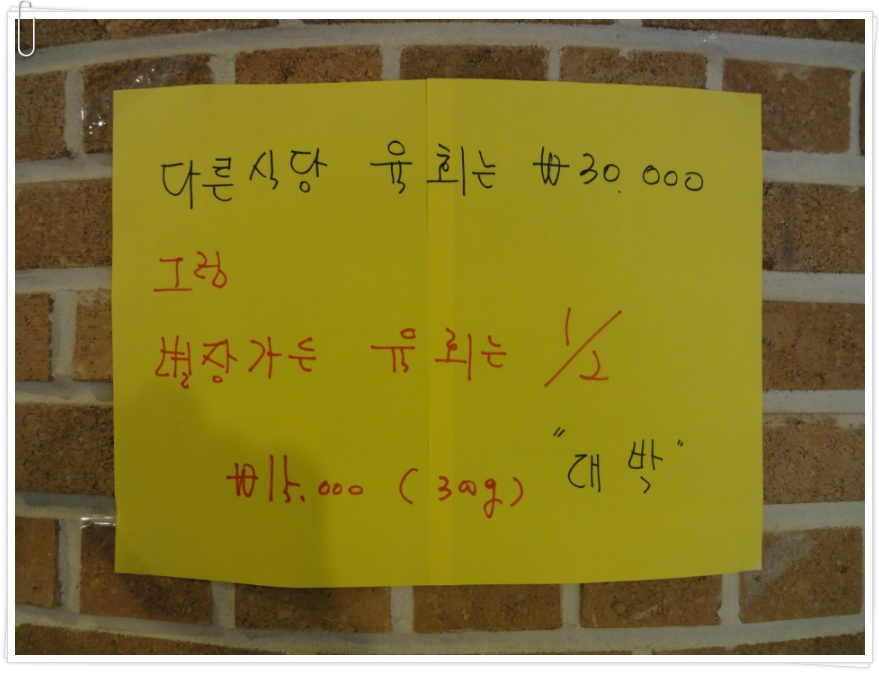 다른식당 육회는 ₩30.000
그럼
별장가든 육회는 1/2
₩15.000 (300g) "대박"